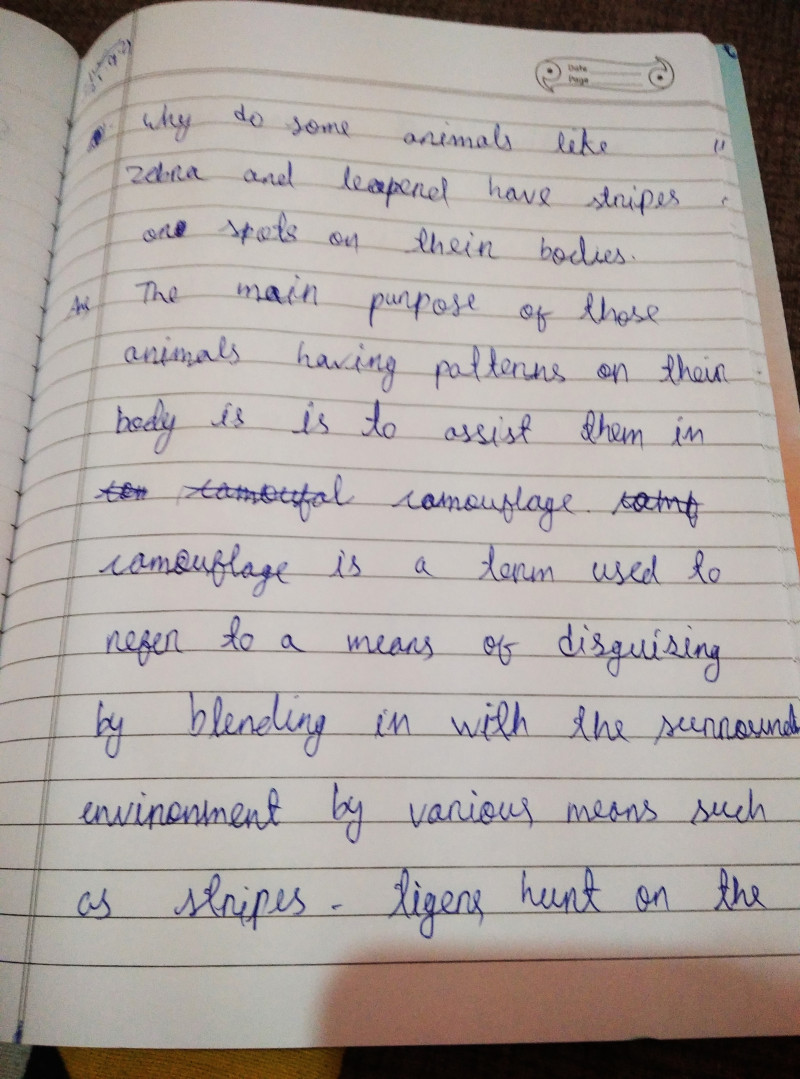 Date
Page
Why do some animals like "
zebra and leapend have stripes
or spots on their bodies.
Ans The main purpose of those
animals having patterns on their
body is is to assist them in
camouflage.
camouflage is a term used to
refer to a means of disguising
by blending in with the surround
environment by various means such
as stripes - tigers hunt on the